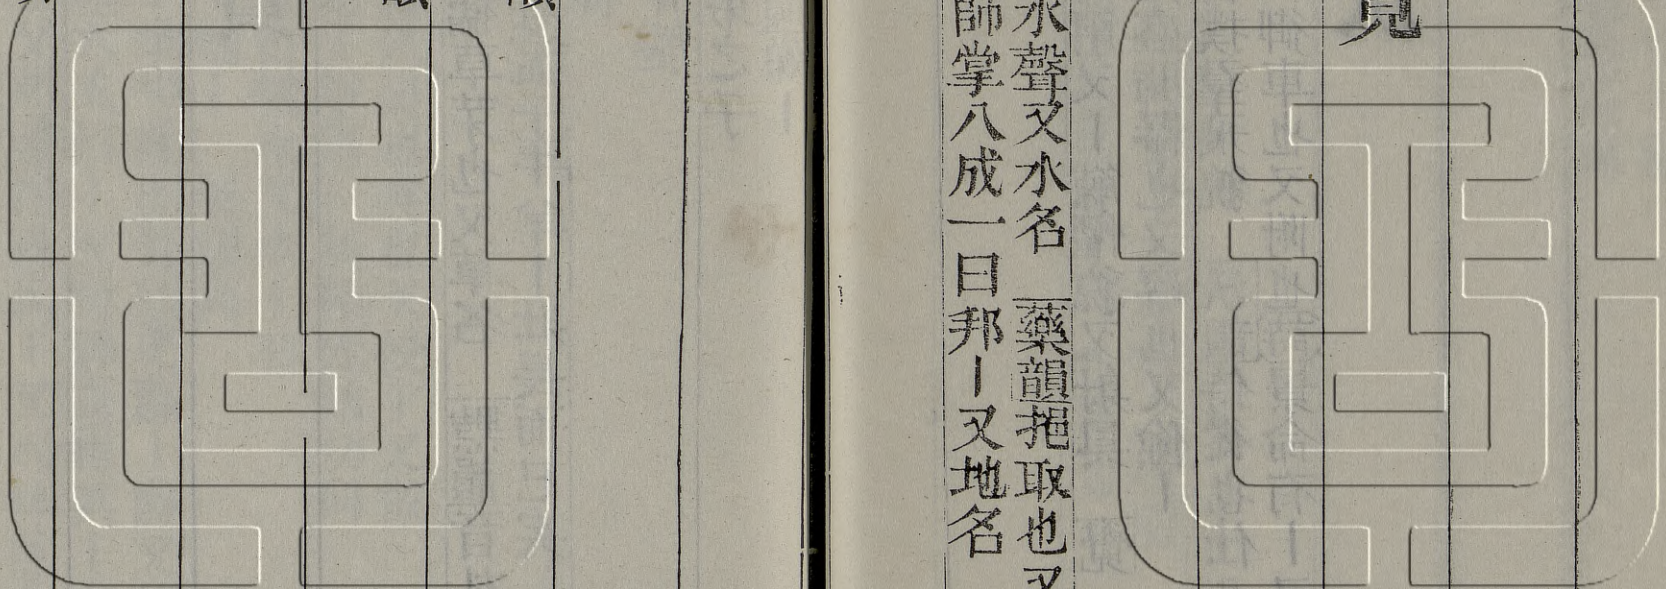 水聲又水名　藥韻挹取也又
師掌八成一曰邦ー又地名